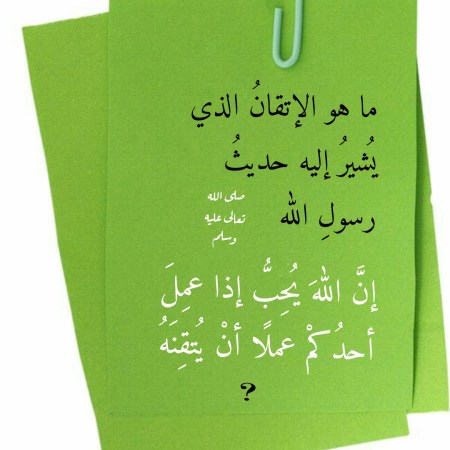 ما هو الإتقانُ الذي
يُشيرُ إليه حديثُ
رسولِ الله صلى الله تعالى عليه وسلم
إنَّ اللهَ يُحِبُّ إذا عمِلَ
أحدُكمْ عملًا أنْ يُتقِنَهُ
?